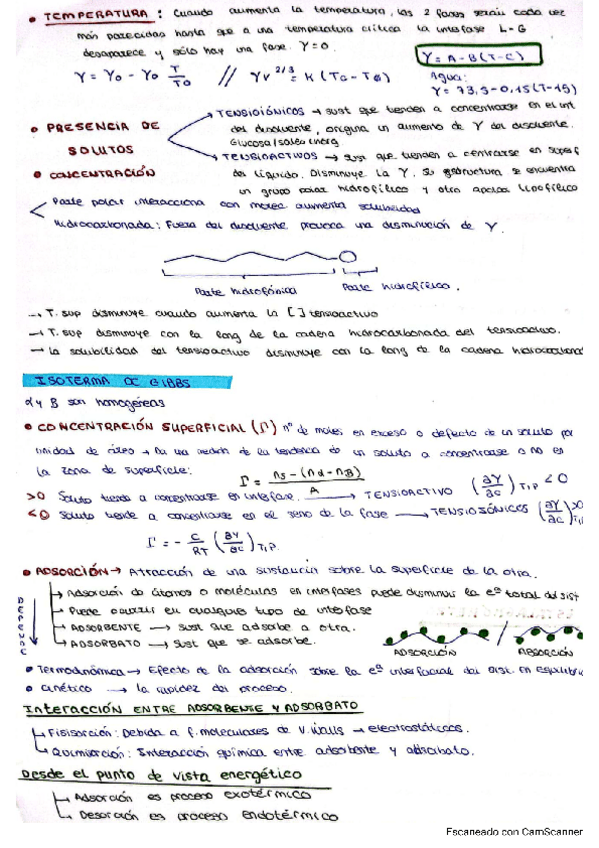 • TEMPERATURA: Cuando aumenta la temperatura, las 2 fases serán cada vez
más parecidas hasta que a una temperatura crítica la interfase L-G
desaparece y sólo hay una fase. γ=0.
γ = A - B(T-C)
γ = γ0 - γ0 T/T0 // γV^2/3 = K (Tc - T6)
Agua:
γ = 73,5-0,15(T-15)
• PRESENCIA DE SOLUTOS
TENSIOIÓNICOS → sust que tienden a concentrarse en el int
del disolvente, origina un aumento de γ del disolvente.
Glucosa/sales inorg
TENSIOACTIVOS → sust que tienden a centrarse en superf
del líquido. Disminuye la γ. Su estructura se encuentra
un grupo polar hidrofílico y otro apolar lipofílico
• CONCENTRACIÓN
Parte polar interacciona con molec aumenta solubilidad
Hidrocarbonada: Fuera del disolvente provoca una disminución de γ.
Parte hidrofónica Parte hidrofílica.
→ T. sup disminuye cuando aumenta la [ ] tensioactivo
→ T. sup disminuye con la long de la cadena hidrocarbonada del tensioactivo.
→ la solubilidad del tensioactivo disminuye con la long de la cadena hidrocarbonad
ISOTERMA DE GIBBS
α y B son homogéneas
• CONCENTRACIÓN SUPERFICIAL (Γ) nº de moles en exceso o defecto de un soluto por
unidad de área → Da una medida de la tendencia de un soluto a concentrarse o no en
la zona de superficie: Γ = ns - (nα - nB) / A
>0 Soluto tiende a concentrarse en interfase. → TENSIOACTIVO (∂γ/∂c)T,P < 0
<0 Soluto tiende a concentrarse en el seno de la fase → TENSIOSÓNICOS (∂γ/∂c)T,P >0
Γ = - C/RT (∂γ/∂c)T,P
• ADSORCIÓN → Atracción de una sustancia sobre la superficie de la otra.
DEPENDE
Adsorción de átomos o moléculas en interfases puede disminuir la eª total del sist
Puede ocurrir en cualquier tipo de interfase
ADSORBENTE → sust que adsorbe a otra.
ADSORBATO → Sust que se adsorbe.
ADSORCIÓN ABSORCIÓN
• Termodinámica → Efecto de la adsorción sobre la eª interfacial del sist. en equilibrio
• Cinético → la rapidez del proceso.
INTERACCIÓN ENTRE ADSORBENTE Y ADSORBATO
Fisisorción: Debida a f. moleculares de V. Walls → electrostáticas.
Quimisorción: Interacción química entre adsorbente y adsorbato.
Desde el punto de vista energético
Adsorción es proceso exotérmico
Desorción es proceso endotérmico
Escaneado con CamScanner